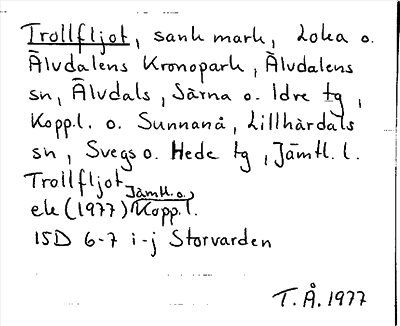 Trollfljot, sank mark, Loka o.
Älvdalens Kronopark, Älvdalens
sn, Älvdals, Särna o. Idre tg,
Kopp.l. o. Sunnanå, Lillhärdals
sn, Svegs o. Hede tg, Jämtl. l.
Trollfljot
Jämtl. o.
ek (1977) Kopp.l.
15D 6-7 i-j Storvarden
T. Å. 1977